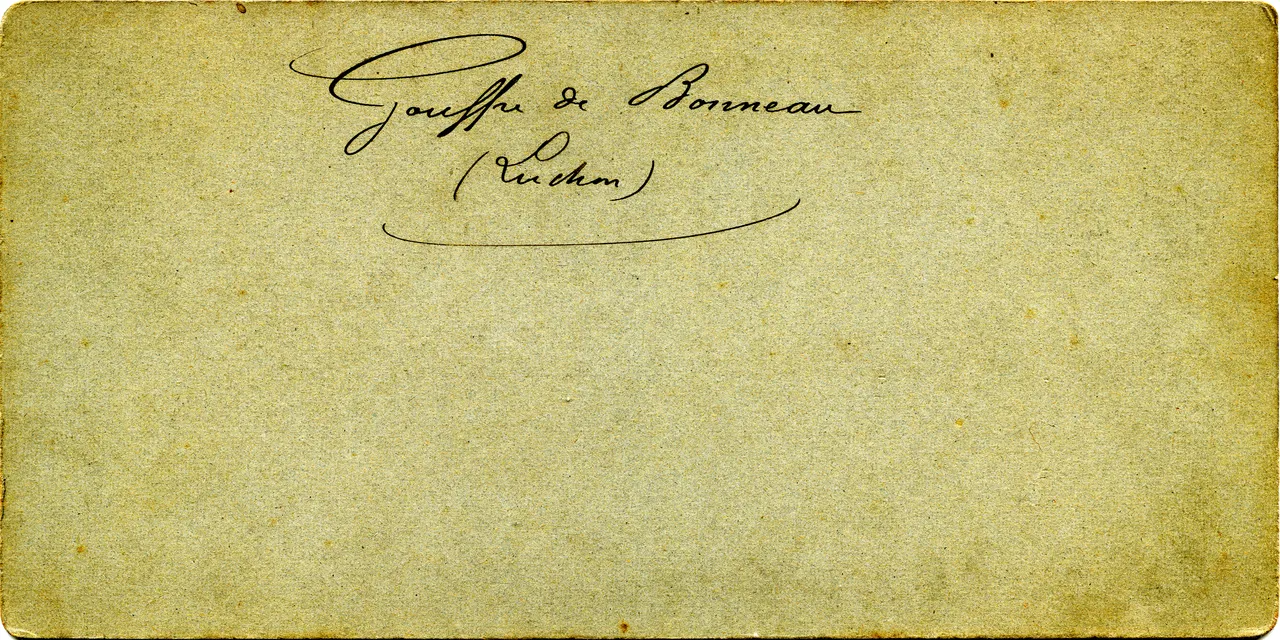 Gouffre de Bonneau
(Luchon)